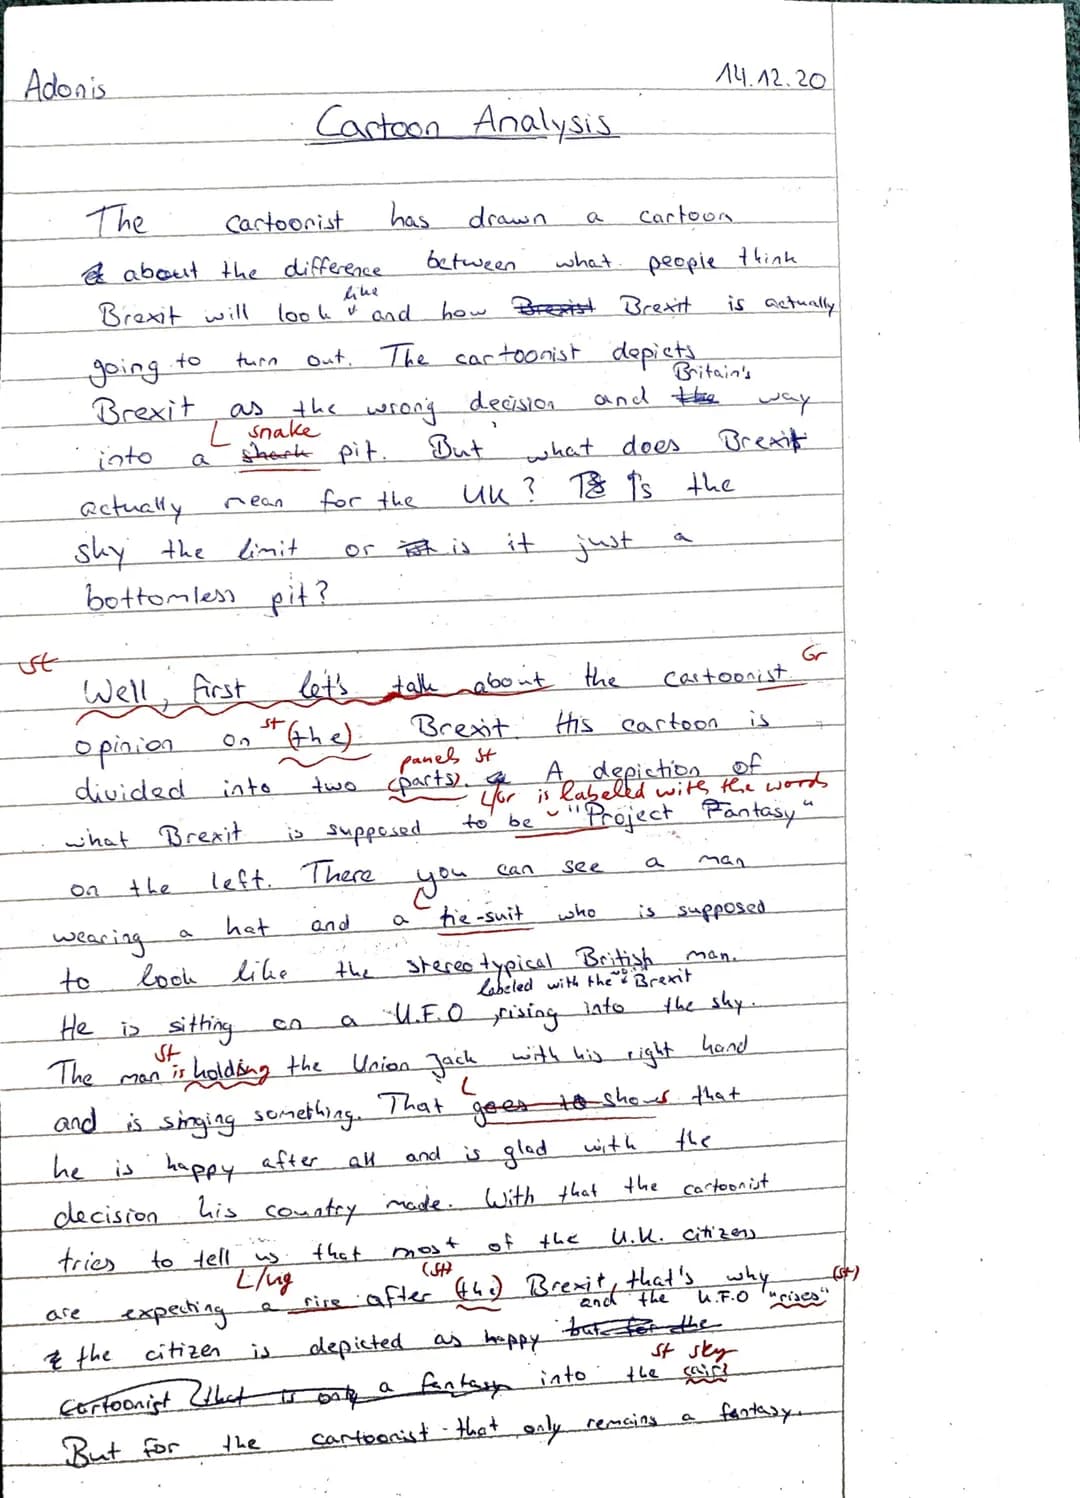 Adonis 14.12.20
Cartoon Analysis
The cartoonist has drawn a cartoon
about the difference between what people think
like
Brexit will look and how Brexist Brexit is actually
going to turn out. The cartoonist depicts
Britain's
Brexit as the wrong decision and the way
L snake
into a shark pit. But what does Brexit
actually mean for the UK? Is the
sky the limit or is it just a
bottomless pit?
st Gr
Well, first let's talk about the cartoonist
opinion on st (the) Brexit. His cartoon is
panels st
divided into two (parts). A depiction of
L/Gr is labeled with the words
what Brexit is supposed to be "Project Fantasy"
on the left. There you can see a man
L
wearing a hat and a tie-suit who is supposed
to look like the stereotypical British man.
labeled with the Brexit
He is sitting on a U.F.O, rising into the sky.
st
The man is holding the Union Jack with his right hand
L
and is singing something. That goes to shows that
he is happy after all and is glad with the
decision his country made. With that the cartoonist
tries to tell us that most of the U.K. citizens
L/ug (st) (st)
are expecting a rise after (the) Brexit, that's why
and the U.F.O "rises"
the citizen is depicted as happy but for the
st sky
cartoonist (that is only a fantasy into the (air)
But for the cartoonist that only remains a fantasy.